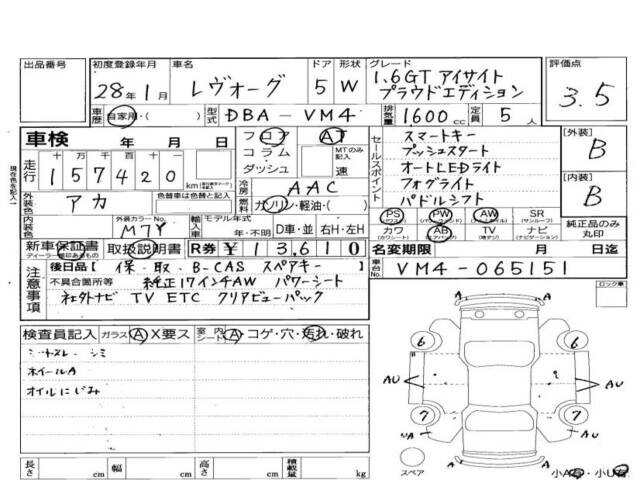 出品番号 初度登録年月 車名 ドア 形状 グレード 評価点
28年1月 レヴォーグ 5 W 1.6GT アイサイト
プラウドエディション
3.5
車歴 自家用・( ) 型式 DBA-VM4 排気量 1600cc 定員 5人
車検 年 月 日 フロア AT
コラム MTのみ記入
ダッシュ 速
走行 十万 万 千 百 十 一
157420 km
冷房 AAC
外装色 アカ 色替車は色替と記入 燃料 ガソリン・軽油・( )
内装色 外装カラーNo. M7Y 輸入車 モデル年式 年・不明 D車・並 右H・左H
セールスポイント
スマートキー
プッシュスタート
オートLEDライト
フォグライト
パドルシフト
【外装】 B
【内装】 B
PS PW AW SR
(パワーウィンドウ) (サンルーフ)
カワ AB TV ナビ
(カワシート) (エアバッグ) (地デジ) (ナビゲーション)
純正品のみ丸印
新車保証書 取扱説明書 R券 ¥13,610 名変期限 月 日迄
後日品( 保・取 B-CAS スペアキー ) 車台No. VM4-065151
注意事項 不具合箇所等 純正17インチAW パワーシート
社外ナビ TV ETC クリアビューパック
現在色を記入
ロック車
検査員記入 ガラス A X要ス 室内 シート A・コゲ・穴・汚れ・破れ
シートスレ シミ
ホイールA
オイルにじみ
A A
6 6
AU AU
7 7
UA UA
A A
スペア
小A有・小U有
長さ cm 幅 cm 高さ cm 積載量 kg